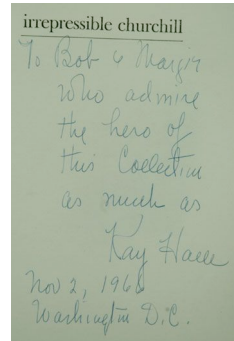 irrepressible churchill
To Bob & Margie
who admire
the hero of
this Collection
as much as
Kay Halle
Nov 2, 1966
Washington D.C.